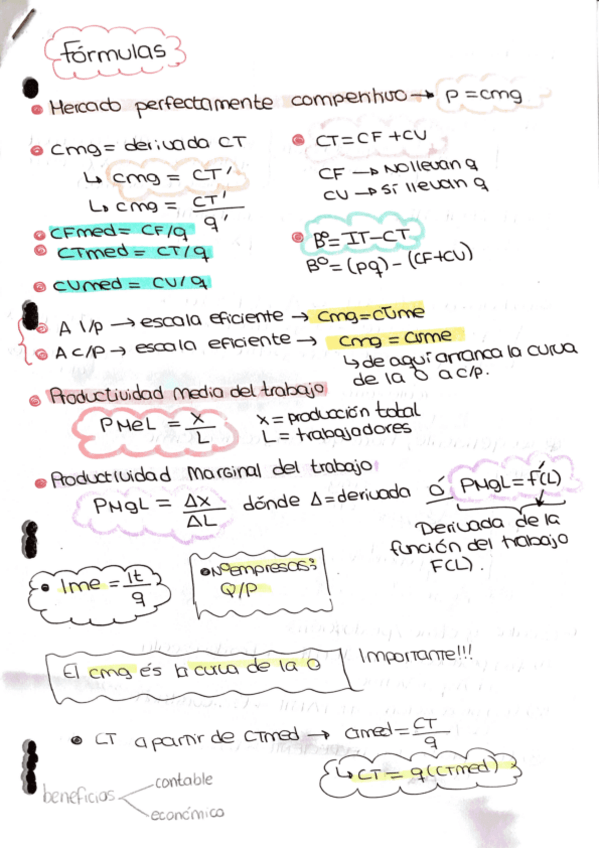 Fórmulas
Mercado perfectamente competitivo → p = cmg
Cmg = derivada CT
↳ cmg = CT'
↳ cmg = CT'/q'
CFmed = CF/q
CTmed = CT/q
CVmed = CV/q
CT = CF + CV
CF → NO llevan q
CV → Sí llevan q
Bº = IT - CT
Bº = (pq) - (CF+CV)
A l/p → escala eficiente → Cmg = CTme
A c/p → escala eficiente → Cmg = CVme
↳ de aquí arranca la curva
de la O a c/p.
Productividad media del trabajo
PMeL = X/L
X = producción total
L = trabajadores
Productividad Marginal del trabajo
PMgL = ΔX/ΔL dónde Δ = derivada ó PMgL = f'(L)
Derivada de la
función del trabajo
F(L).
Ime = It/q
Nº empresas:
Q/P
El cmg és la curca de la O
Importante!!!
CT a partir de CTmed → cmed = CT/q
↳ CT = q(CTmed)
beneficios
contable
económico